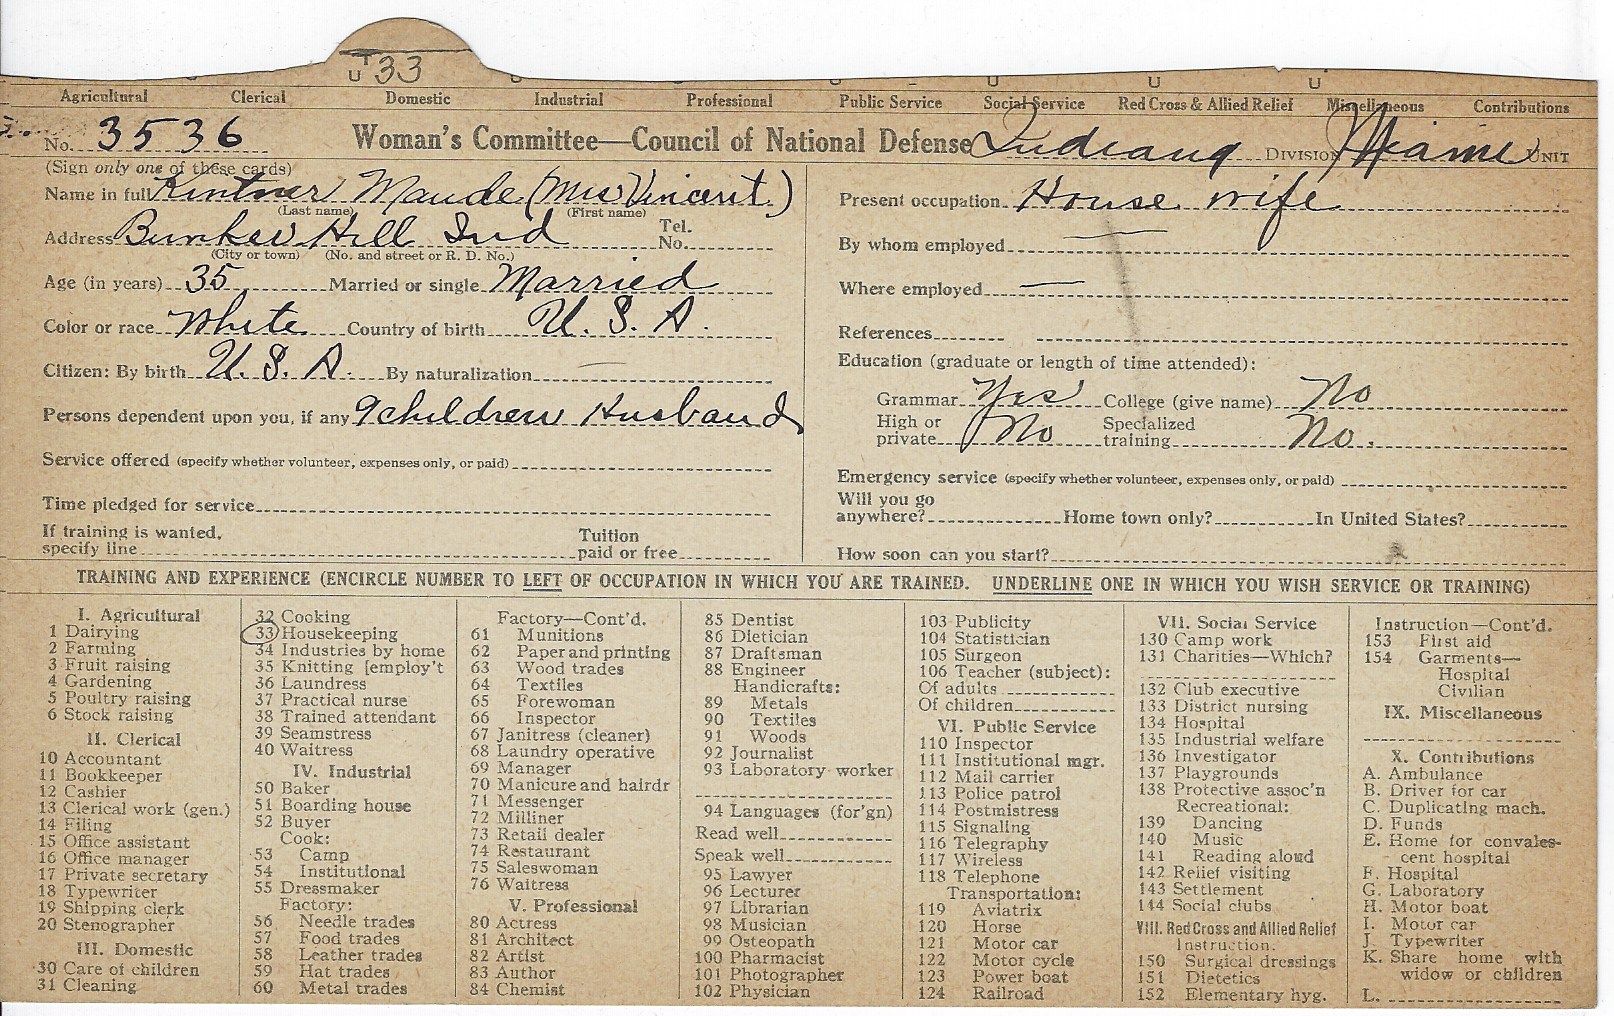 33
Agricultural Clerical Domestic Industrial Professional Public Service Social Service Red Cross & Allied Relief Miscellaneous Contributions
No. 3536 Woman's Committee—Council of National Defense Indiana DIVISION Miami UNIT
(Sign only one of these cards)
Name in full Kintner Maude (Mrs Vincent)
(Last name) (First name)
Address Bunker Hill Ind Tel. No.
(City or town) (No. and street or R. D. No.)
Age (in years) 35 Married or single Married
Color or race White Country of birth U. S. A.
Citizen: By birth U. S. A. By naturalization —
Persons dependent upon you, if any 9 children Husband
Service offered (specify whether volunteer, expenses only, or paid)
Time pledged for service
If training is wanted, specify line Tuition paid or free
Present occupation House wife
By whom employed —
Where employed —
References
Education (graduate or length of time attended):
Grammar Yes College (give name) No
High or private No Specialized training No.
Emergency service (specify whether volunteer, expenses only, or paid)
Will you go anywhere? Home town only? In United States?
How soon can you start?
TRAINING AND EXPERIENCE (ENCIRCLE NUMBER TO LEFT OF OCCUPATION IN WHICH YOU ARE TRAINED. UNDERLINE ONE IN WHICH YOU WISH SERVICE OR TRAINING)
I. Agricultural
1 Dairying
2 Farming
3 Fruit raising
4 Gardening
5 Poultry raising
6 Stock raising
II. Clerical
10 Accountant
11 Bookkeeper
12 Cashier
13 Clerical work (gen.)
14 Filing
15 Office assistant
16 Office manager
17 Private secretary
18 Typewriter
19 Shipping clerk
20 Stenographer
III. Domestic
30 Care of children
31 Cleaning
32 Cooking
33 Housekeeping
34 Industries by home
35 Knitting [employ't
36 Laundress
37 Practical nurse
38 Trained attendant
39 Seamstress
40 Waitress
IV. Industrial
50 Baker
51 Boarding house
52 Buyer
Cook:
53 Camp
54 Institutional
55 Dressmaker
Factory:
56 Needle trades
57 Food trades
58 Leather trades
59 Hat trades
60 Metal trades
Factory—Cont'd.
61 Munitions
62 Paper and printing
63 Wood trades
64 Textiles
65 Forewoman
66 Inspector
67 Janitress (cleaner)
68 Laundry operative
69 Manager
70 Manicure and hairdr
71 Messenger
72 Milliner
73 Retail dealer
74 Restaurant
75 Saleswoman
76 Waitress
V. Professional
80 Actress
81 Architect
82 Artist
83 Author
84 Chemist
85 Dentist
86 Dietician
87 Draftsman
88 Engineer
Handicrafts:
89 Metals
90 Textiles
91 Woods
92 Journalist
93 Laboratory worker
94 Languages (for'gn)
Read well
Speak well
95 Lawyer
96 Lecturer
97 Librarian
98 Musician
99 Osteopath
100 Pharmacist
101 Photographer
102 Physician
103 Publicity
104 Statistician
105 Surgeon
106 Teacher (subject):
Of adults
Of children
VI. Public Service
110 Inspector
111 Institutional mgr.
112 Mail carrier
113 Police patrol
114 Postmistress
115 Signaling
116 Telegraphy
117 Wireless
118 Telephone
Transportation:
119 Aviatrix
120 Horse
121 Motor car
122 Motor cycle
123 Power boat
124 Railroad
VII. Social Service
130 Camp work
131 Charities—Which?
132 Club executive
133 District nursing
134 Hospital
135 Industrial welfare
136 Investigator
137 Playgrounds
138 Protective assoc'n
Recreational:
139 Dancing
140 Music
141 Reading aloud
142 Relief visiting
143 Settlement
144 Social clubs
VIII. Red Cross and Allied Relief
Instruction:
150 Surgical dressings
151 Dietetics
152 Elementary hyg.
Instruction—Cont'd.
153 First aid
154 Garments—
Hospital
Civilian
IX. Miscellaneous
X. Contributions
A. Ambulance
B. Driver for car
C. Duplicating mach.
D. Funds
E. Home for convales-
cent hospital
F. Hospital
G. Laboratory
H. Motor boat
I. Motor car
J. Typewriter
K. Share home with
widow or children
L.